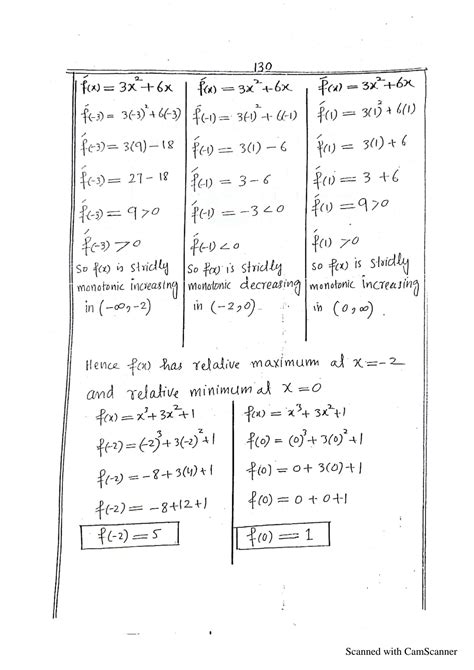 130
f́(x) = 3x² + 6x
f́(-3) = 3(-3)² + 6(-3)
f́(-3) = 3(9) - 18
f́(-3) = 27 - 18
f́(-3) = 9 > 0
f́(-3) > 0
So f(x) is strictly
monotonic increasing
in (-∞, -2)
f́(x) = 3x² + 6x
f́(-1) = 3(-1)² + 6(-1)
f́(-1) = 3(1) - 6
f́(-1) = 3 - 6
f́(-1) = -3 < 0
f́(-1) < 0
So f(x) is strictly
monotonic decreasing
in (-2, 0).
f́(x) = 3x² + 6x
f́(1) = 3(1)² + 6(1)
f́(1) = 3(1) + 6
f́(1) = 3 + 6
f́(1) = 9 > 0
f́(1) > 0
So f(x) is strictly
monotonic increasing
in (0, ∞)
Hence f(x) has relative maximum at x = -2
and relative minimum at x = 0
f(x) = x³ + 3x² + 1
f(-2) = (-2)³ + 3(-2)² + 1
f(-2) = -8 + 3(4) + 1
f(-2) = -8 + 12 + 1
f(-2) = 5
f(x) = x³ + 3x² + 1
f(0) = (0)³ + 3(0)² + 1
f(0) = 0 + 3(0) + 1
f(0) = 0 + 0 + 1
f(0) = 1
Scanned with CamScanner